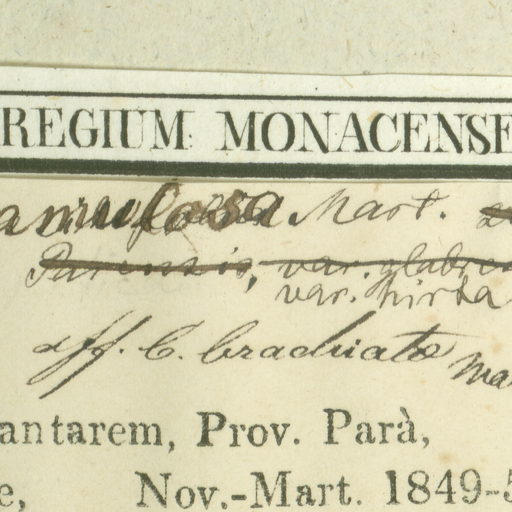 REGIUM MONACENSE
amulosa Mart.
Parensis, var. glabre
var. hirta
aff. C. brachiata Ma
antarem, Prov. Parà,
e, Nov.-Mart. 1849-5